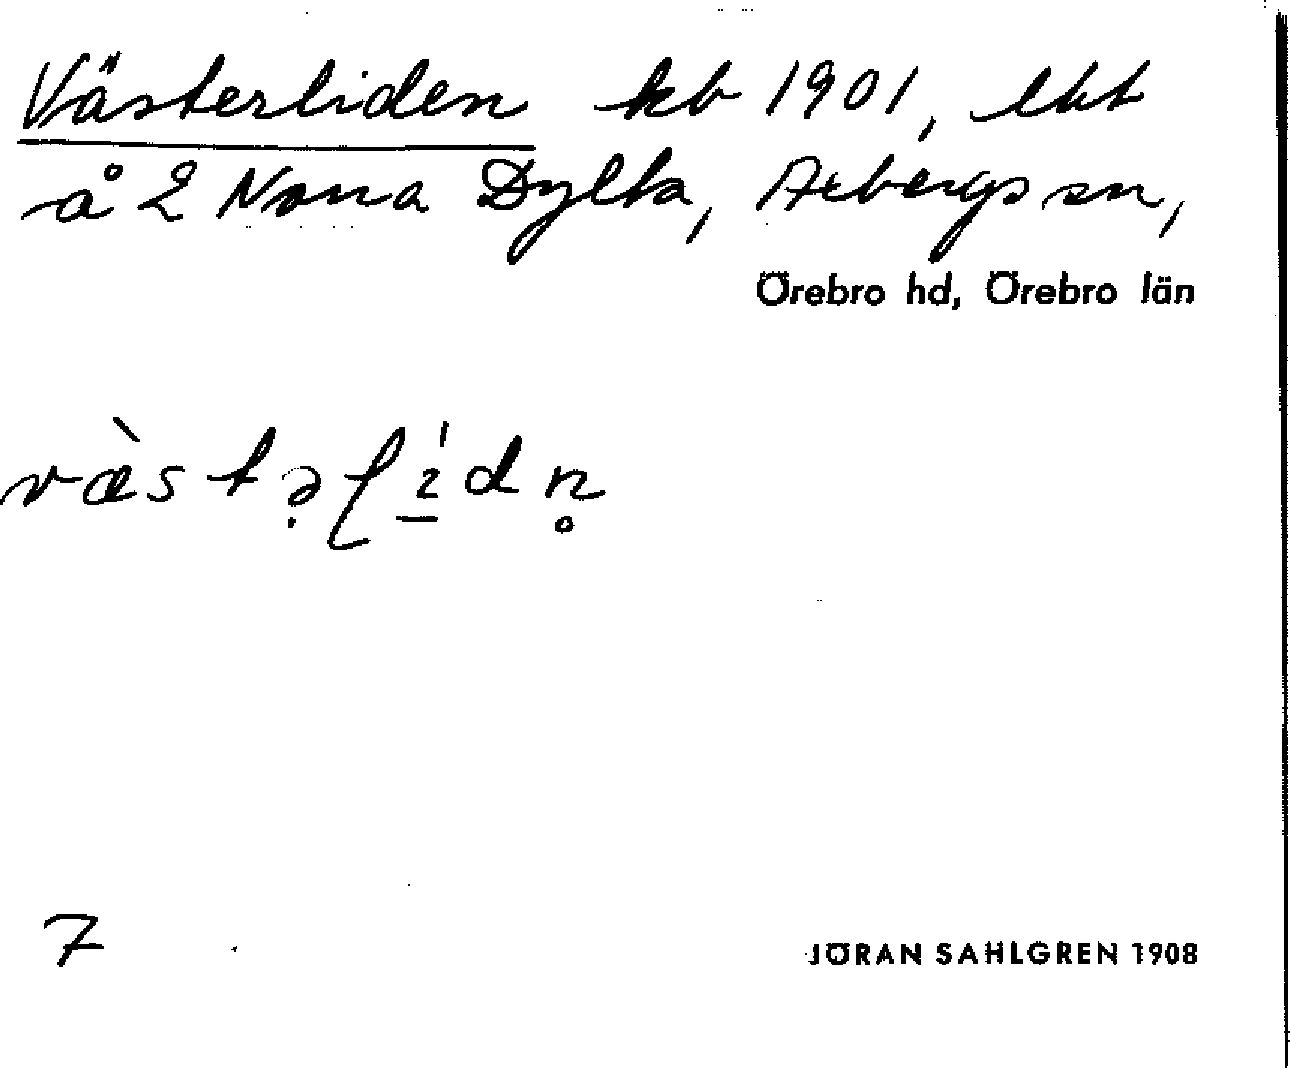 Västerliden kb 1901, lht
å 2 Norra Dylta, Axbergs sn,
Örebro hd, Örebro län
7
JÖRAN SAHLGREN 1908